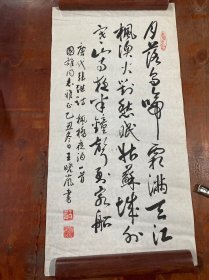 月落乌啼霜满天江
枫渔火对愁眠姑苏城外
寒山寺夜半钟声到客船
唐代张继诗枫桥夜泊一首
国雄同志雅正乙丑冬日王晓岚书